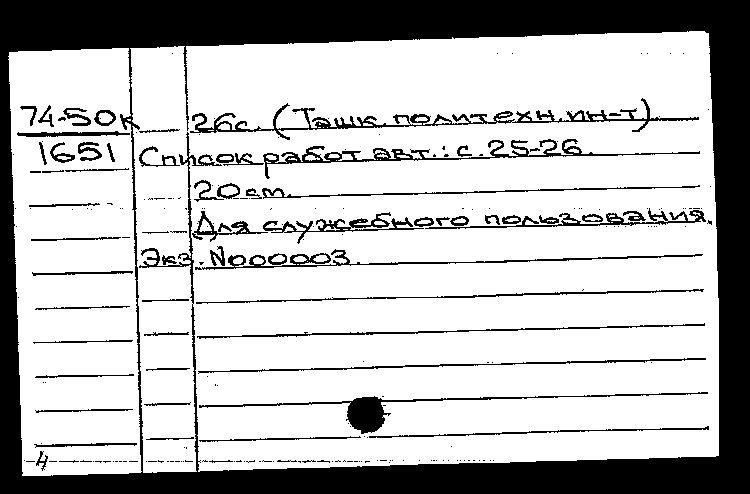 74-50к 26с. (Ташк. политехн. ин-т)
1651 Список работ авт.: с. 25-26.
20 см.
Для служебного пользования.
Экз. №000003.
4